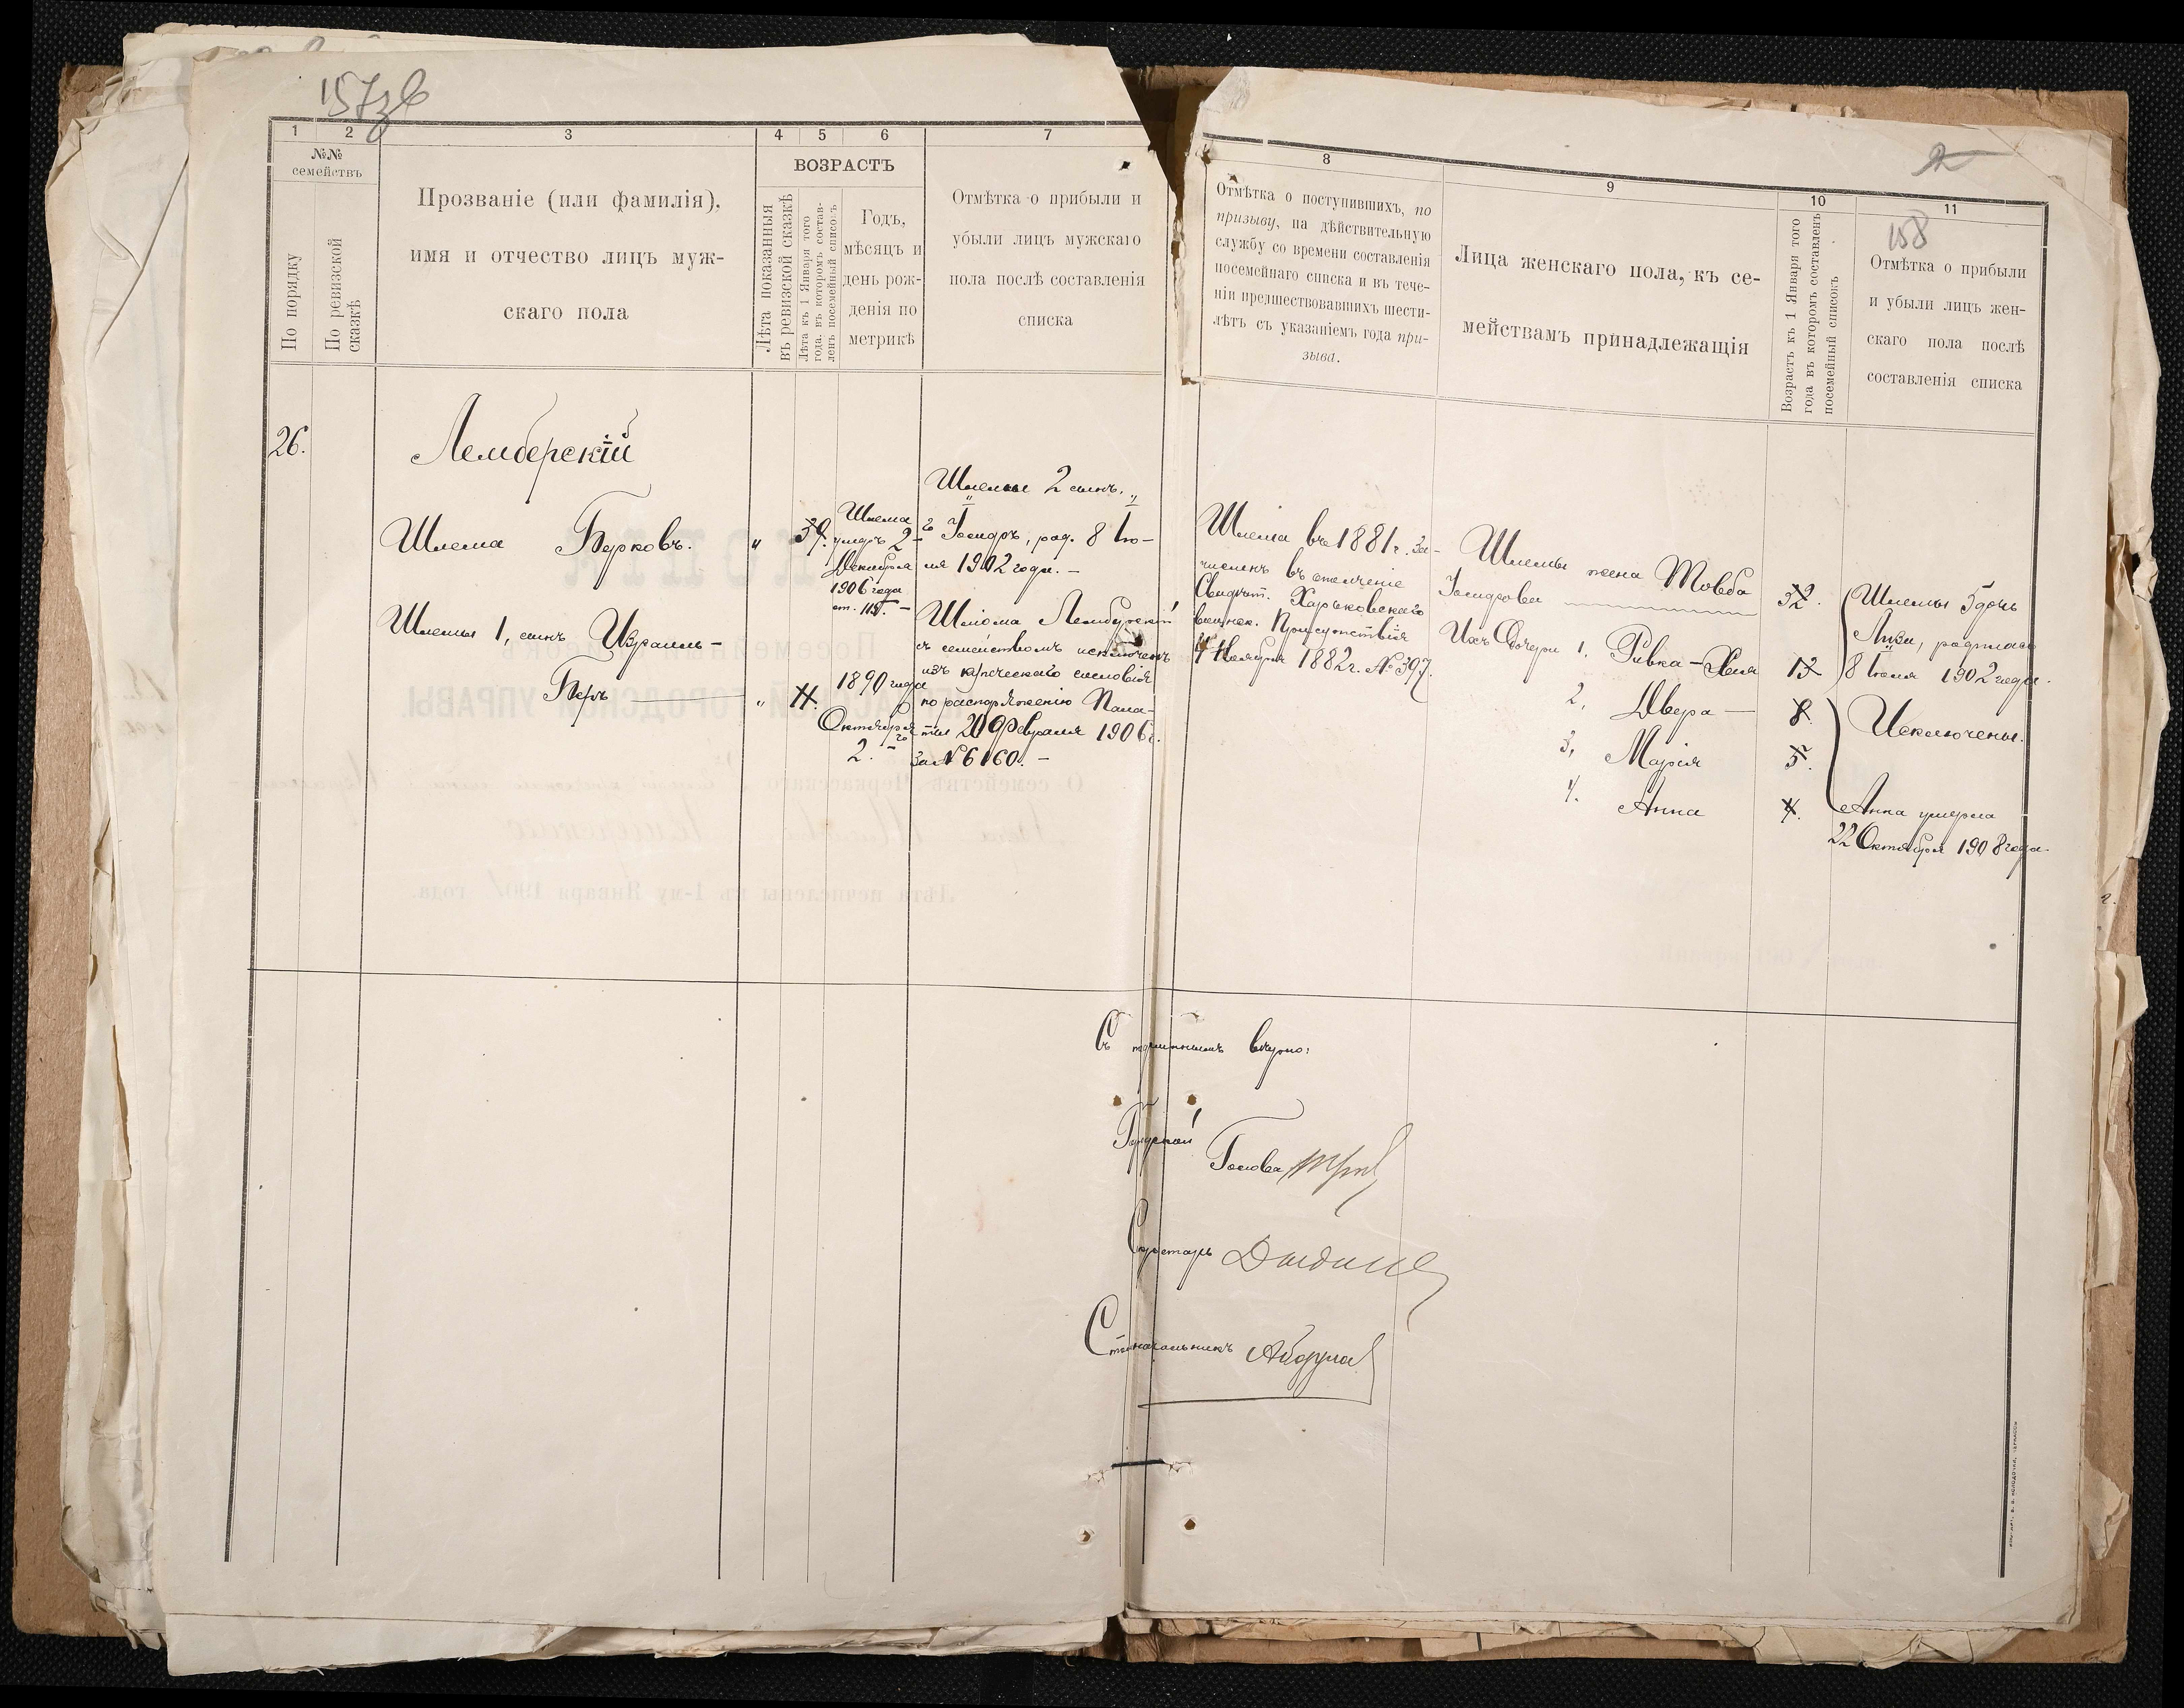 157зв
1 2 3 4 5 6 7
№№
семействъ
По порядку
По ревизской
сказкѣ
Прозваніе (или фамилія),
имя и отчество лицъ муж-
скаго пола
ВОЗРАСТЪ
Лѣта показанныя
въ ревизской сказкѣ
Лѣта къ 1 Января того
года, въ которомъ состав-
ленъ посемейный списокъ
Годъ,
мѣсяцъ и
день рож-
денія по
метрикѣ
Отмѣтка о прибыли и
убыли лицъ мужскаго
пола послѣ составленія
списка
26.
Лемберскій
Шлема Берковъ.
" 39.
Шлема
умеръ 2-го
Декабря
1906 года
Шлемы 1, сынъ Израиль-
Беръ
" 11.
1890 года
Октября
2.
Шлемы 2 сынъ.
Іосифъ, род. 8 Ію-
ля 1902 года. -
Шліома Лемберскій
съ семействомъ исключенъ
изъ купеческаго сословія
по распоряженію Пала-
ты 20 Февраля 1906 г.
за № 6160. -
8 9 10 11
2
158
Отмѣтка о поступившихъ, по
призыву, на дѣйствительную
службу со времени составленія
посемейнаго списка и въ тече-
ніи предшествовавшихъ шести-
лѣтъ съ указаніемъ года при-
зыва.
Лица женскаго пола, къ се-
мействамъ принадлежащія
Возрастъ къ 1 Января того
года въ которомъ составленъ
посемейный списокъ
Отмѣтка о прибыли
и убыли лицъ жен-
скаго пола послѣ
составленія списка
Шлема въ 1881 г. за-
численъ въ ополченіе
Свидѣт. Харьковскаго
воинск. Присутствія
4 Ноября 1882 г. № 397.
Шлемы жена Товба
Іосифова
39.
Ихъ Дочери 1, Ривка-Хая 12
2, Двера - 8.
3, Марія 5.
4. Анна 4.
Шлемы 5 дочь
Лиза, родилась
8 Іюля 1902 года.
Исключены.
Анна умерла
22 Октября 1908 года.
Съ подлиннымъ вѣрно:
Городской
Голова
Секретарь
Столоначальникъ